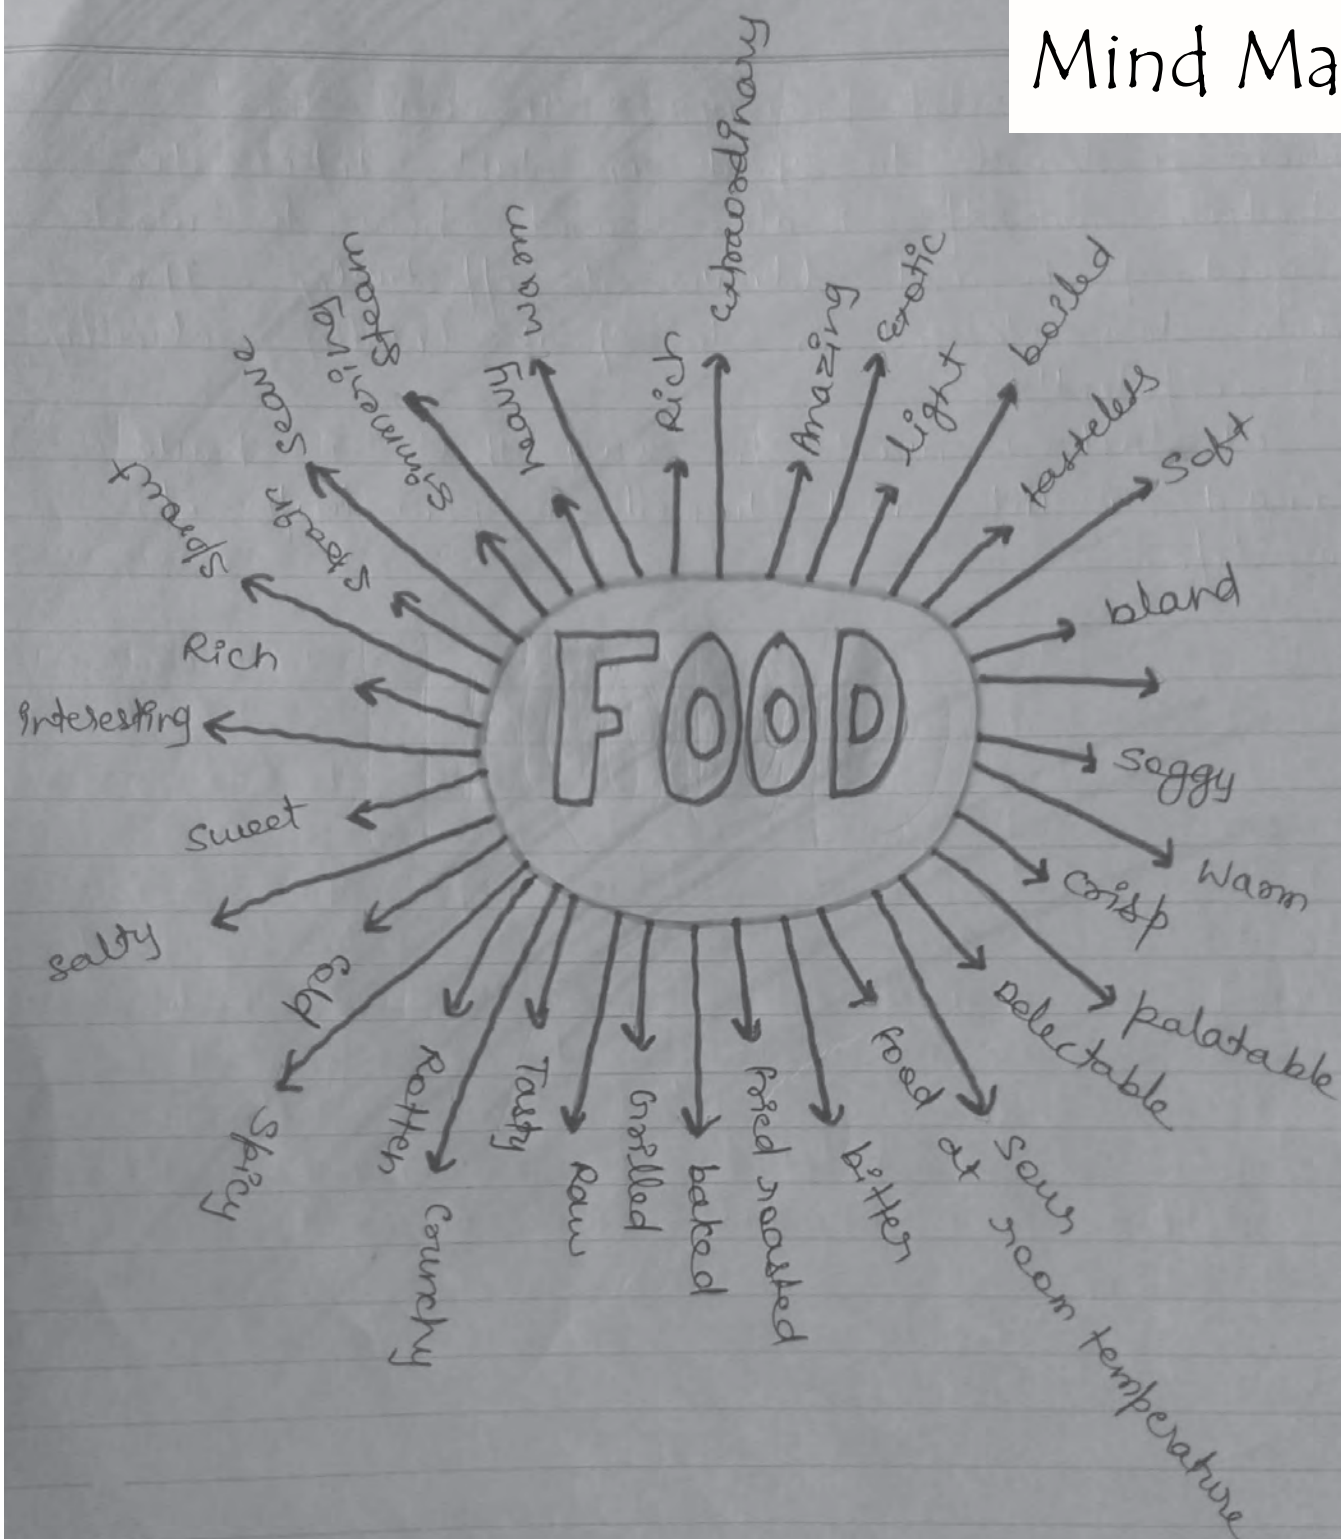 Mind Ma
FOOD
extraordinary
Rich
Amazing
Exotic
light
boiled
tasteless
Soft
bland
soggy
Warm
crisp
palatable
Delectable
Sour
Food at room temperature
bitter
fried roasted
baked
Grilled
Raw
Tasty
Crunchy
Rotten
Spicy
Cold
salty
sweet
interesting
Rich
Sprout
Simmering
Steam
heavy
warm